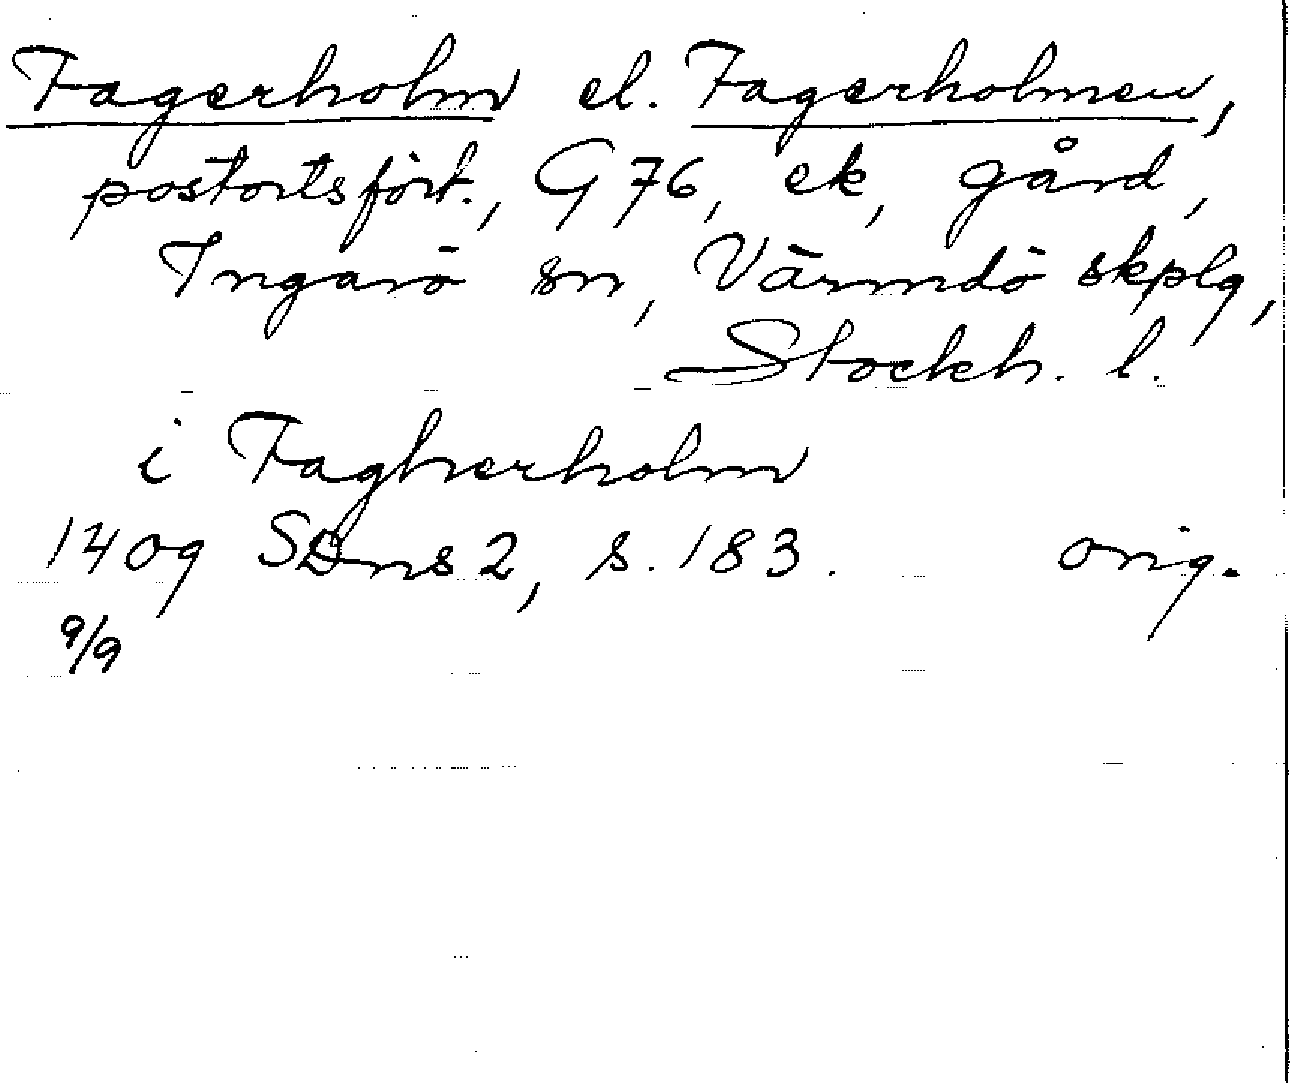 Fagerholm el. Fagerholmen,
postortsfört., G 76, ek, gård,
Ingarö sn, Värmdö skplg,
Stockh. l.
i Fagherholm
1409 SDns 2, s. 183. orig.
9/9